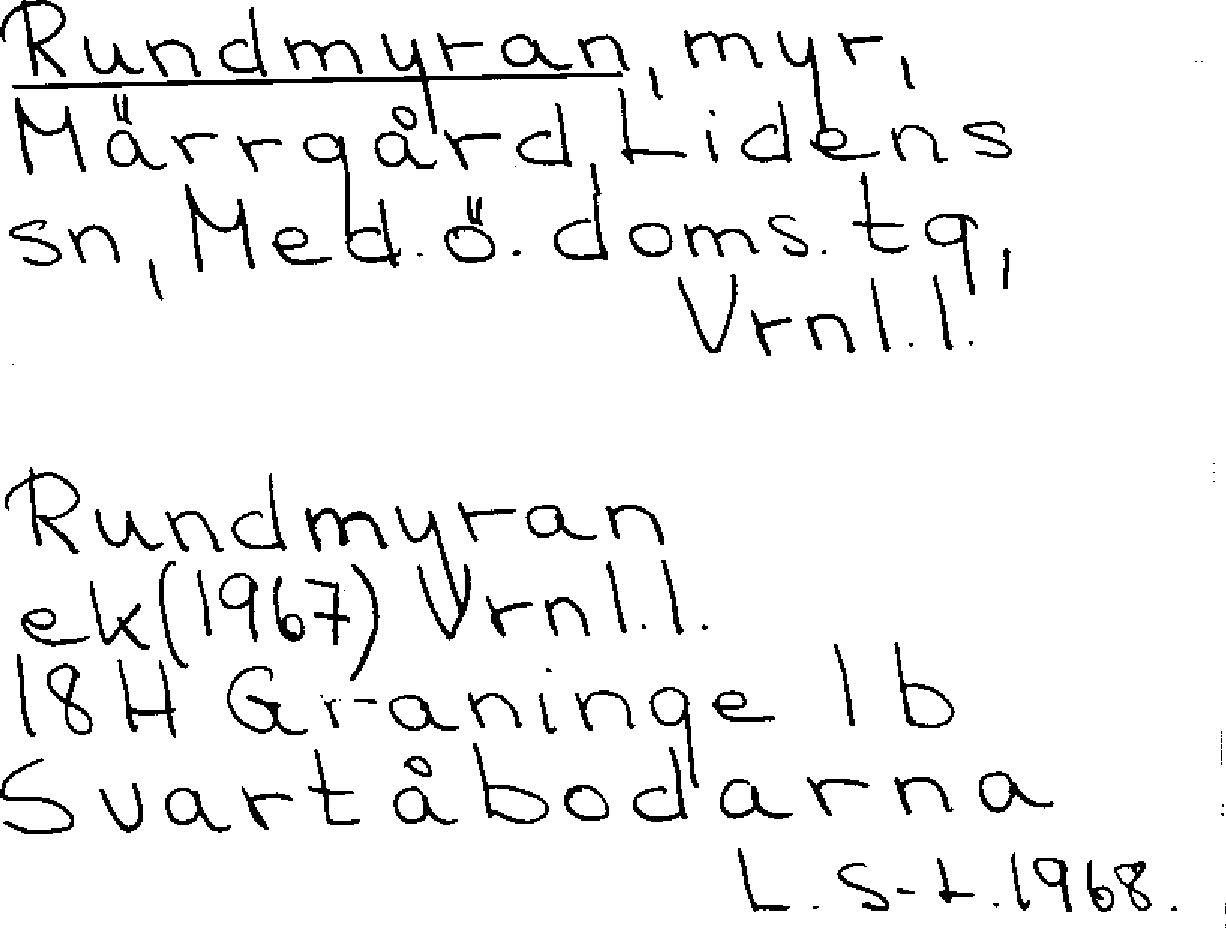 Rundmyran, myr,
Märrgård, Lidens
sn, Med. ö. doms. tg,
Vrnl.l.
Rundmyran
ek (1967) Vrnl.l.
18H Graninge 1b
Svartåbodarna
L. S-L. 1968.